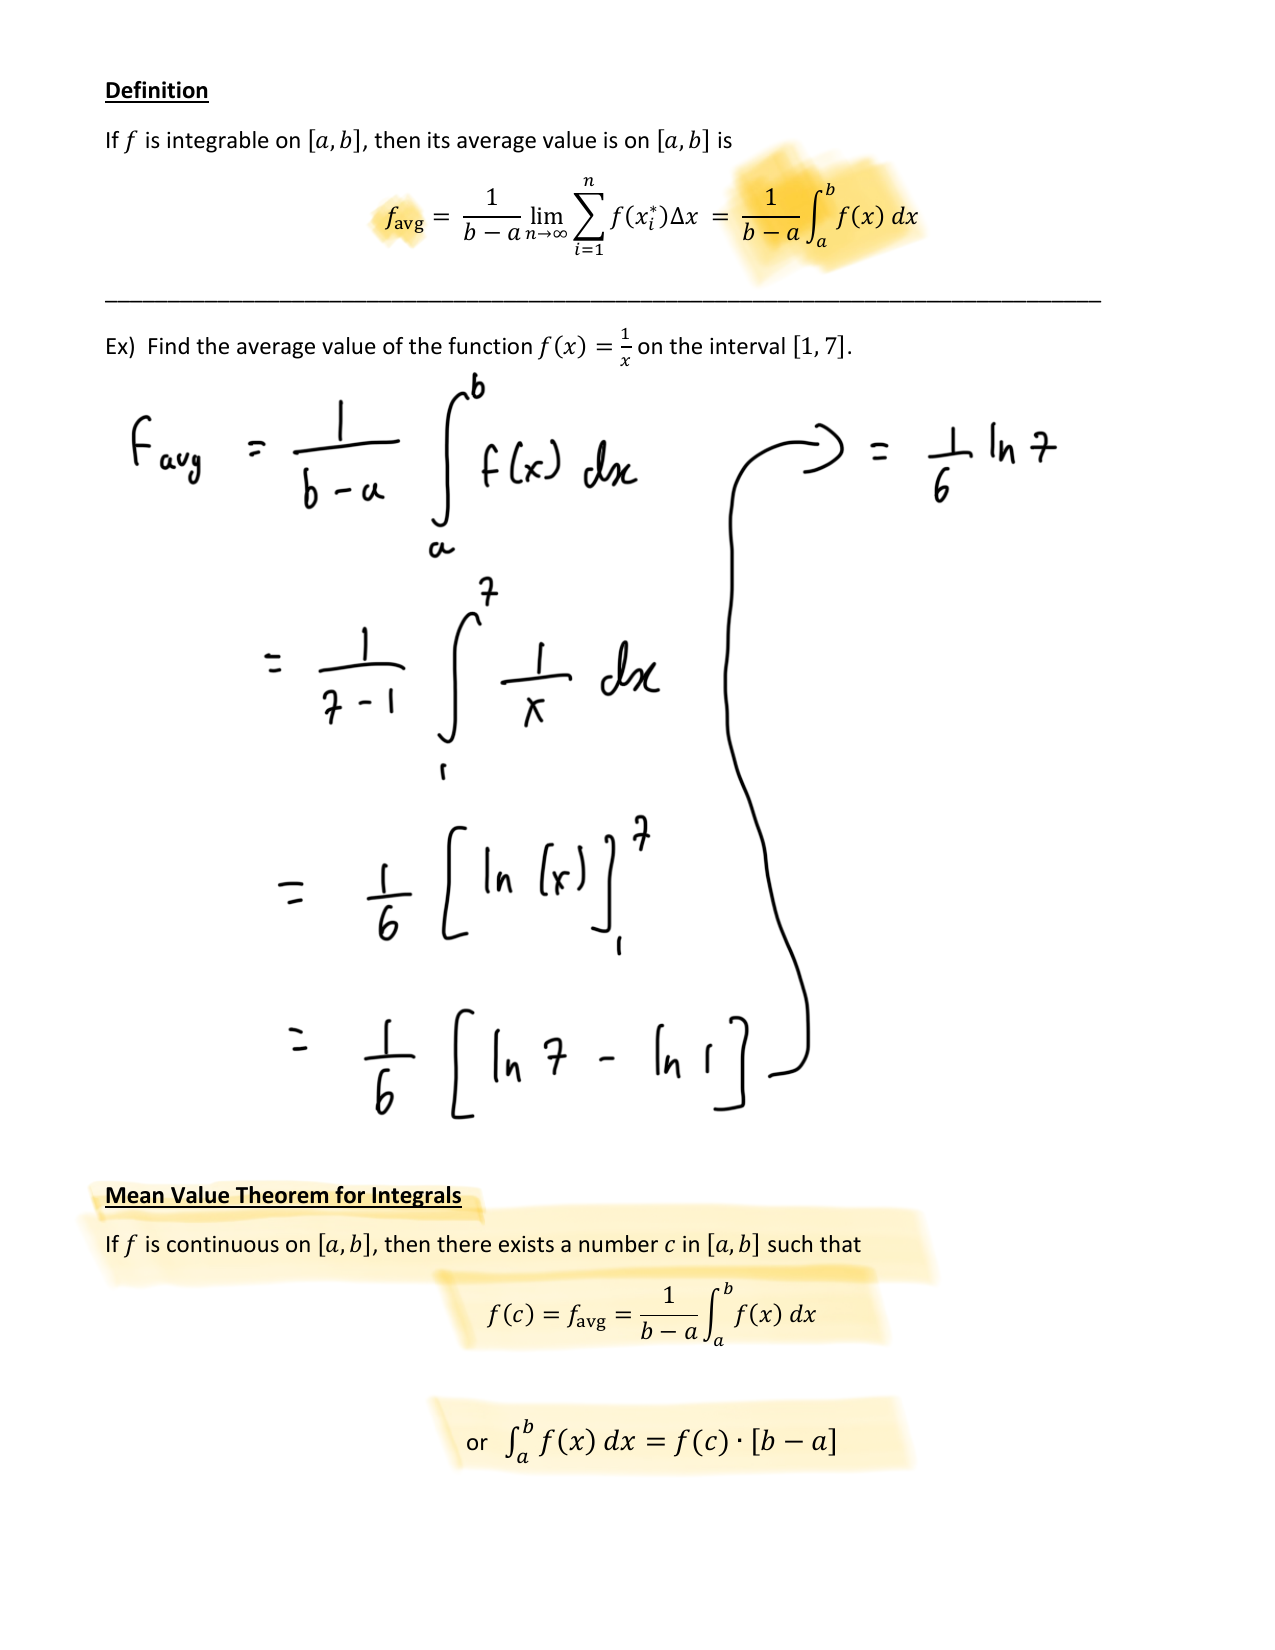 Definition
If f is integrable on [a, b], then its average value is on [a, b] is
f_avg = 1/(b − a) lim_{n→∞} ∑_{i=1}^{n} f(x_i^*)Δx = 1/(b − a) ∫_a^b f(x) dx
Ex) Find the average value of the function f(x) = 1/x on the interval [1, 7].
f_avg = 1/(b - a) ∫_a^b f(x) dx
= 1/(7 - 1) ∫_1^7 1/x dx
= 1/6 [ln (x)]_1^7
= 1/6 [ln 7 - ln 1]
= 1/6 ln 7
Mean Value Theorem for Integrals
If f is continuous on [a, b], then there exists a number c in [a, b] such that
f(c) = f_avg = 1/(b − a) ∫_a^b f(x) dx
or ∫_a^b f(x) dx = f(c) · [b − a]